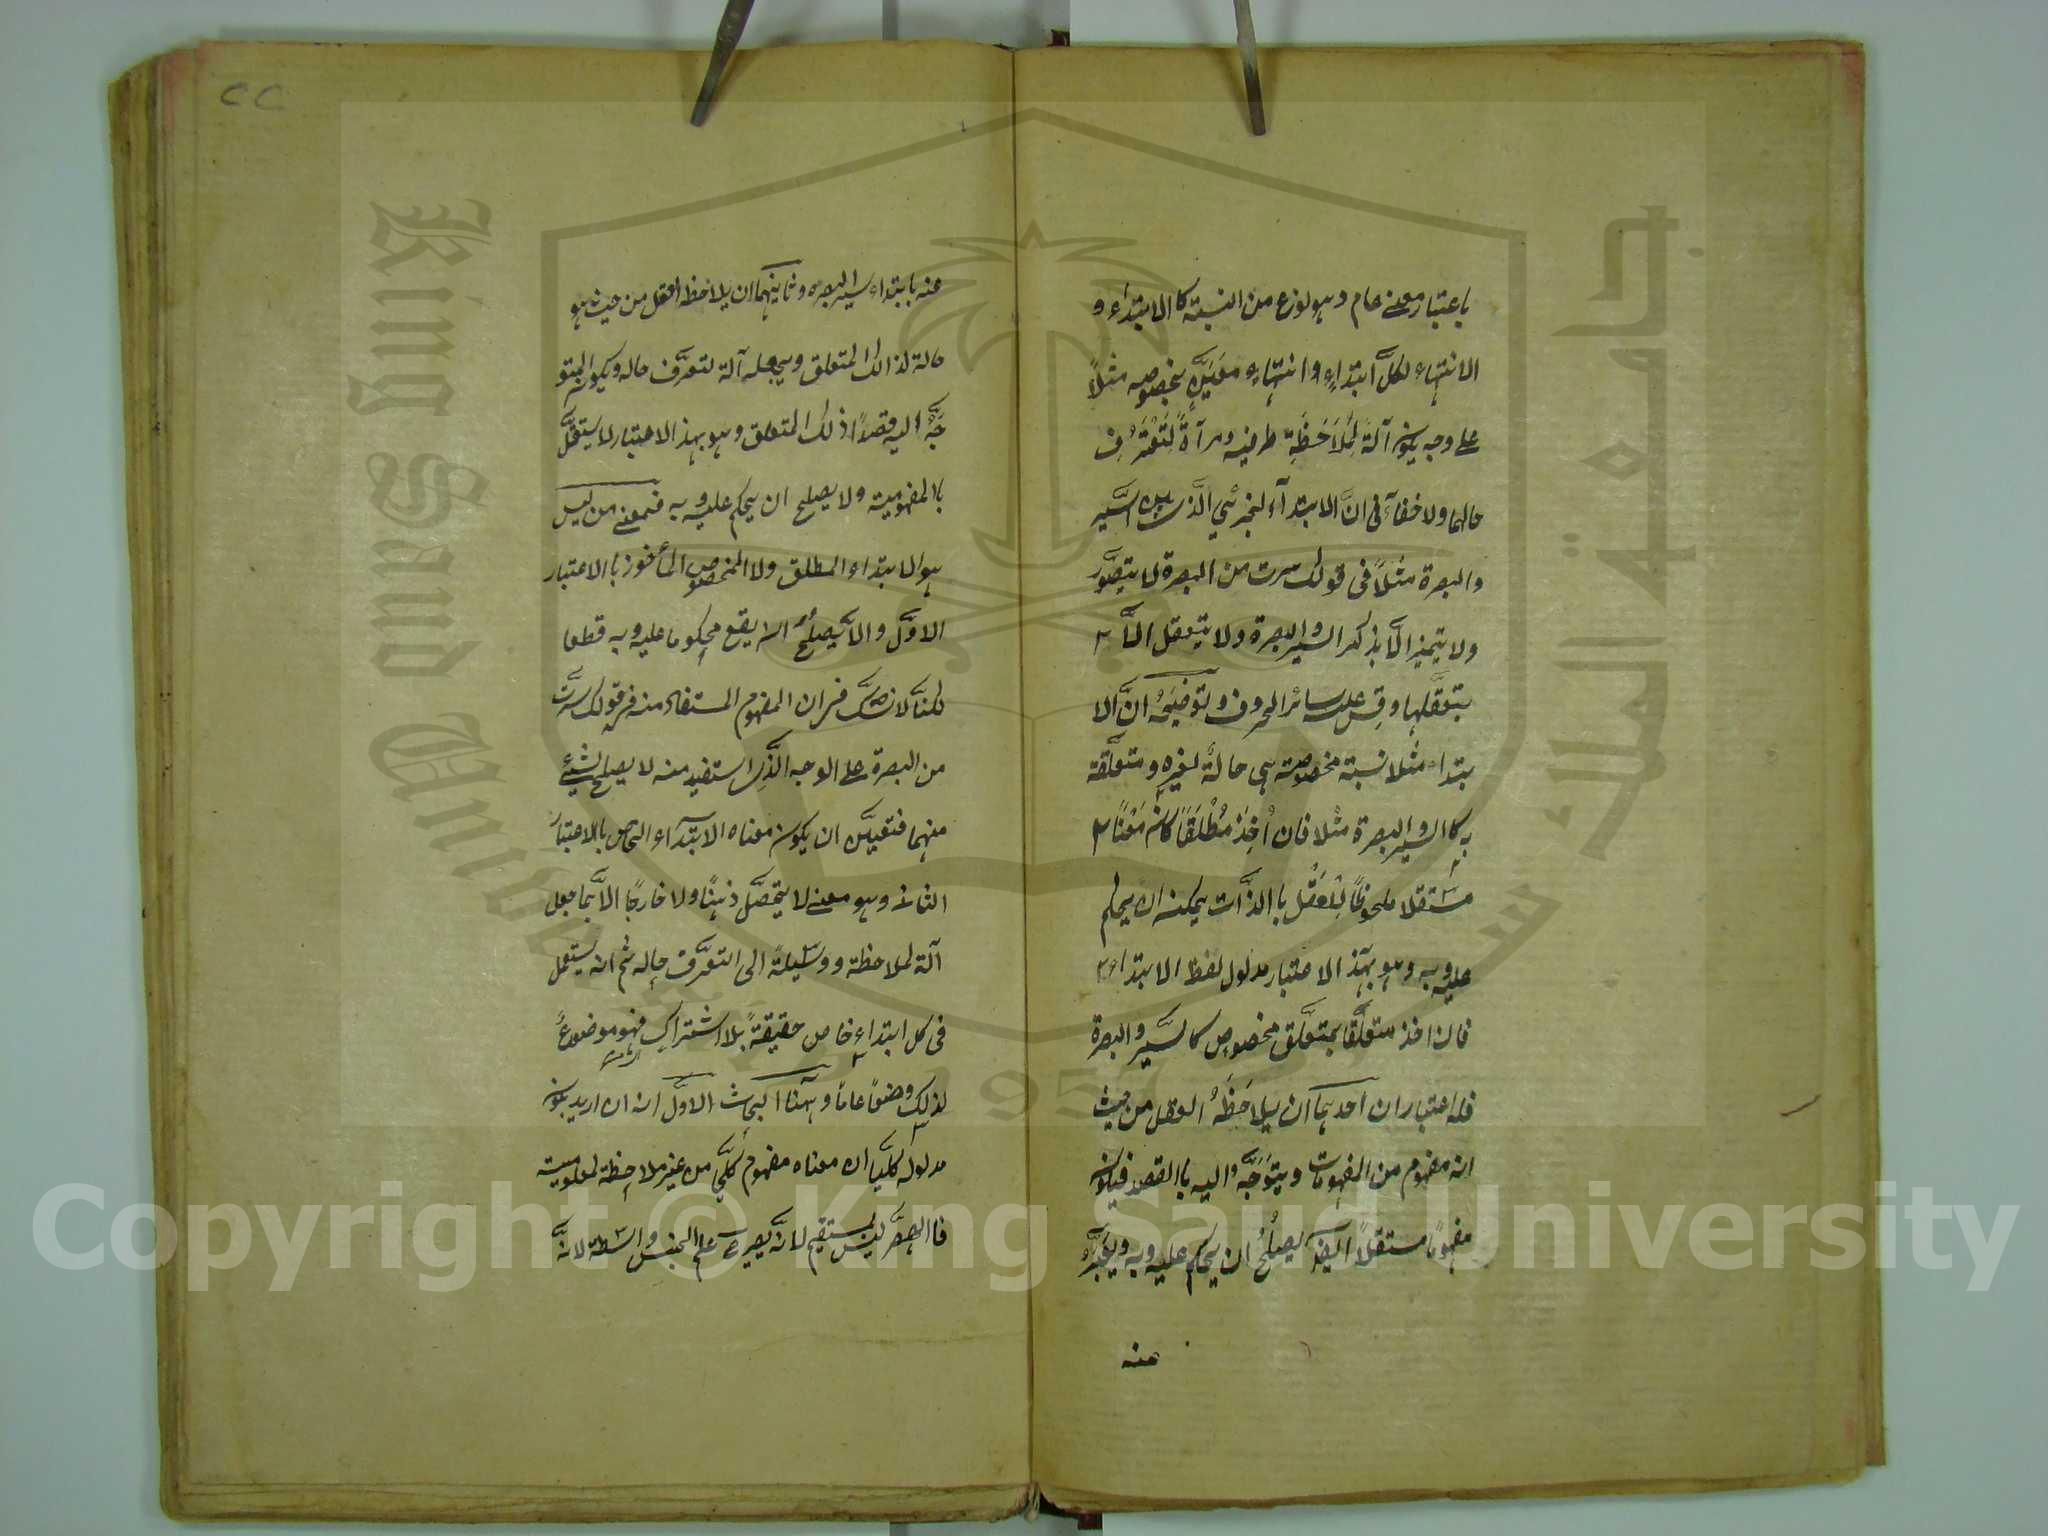 باعتبار معنى عام وهو نوع من النسبة كالابتداء و
الانتهاء لكلّ ابتداءٍ وانتهاءٍ معيّنٍ بخصوصه مثلاً
على وجه يكون آلةً لِمُلاَحَظَةِ طرفيه ومرآةً لتَعَرُّفِ
حالهما ولا خفآء فى انّ الابتدآء الجزئي الّذى بين السَّير
والبصرة مثلاً فى قولك سرت من البصرة لا يتصوّر
ولا يتميز الّا بذكر السير والبصرة ولا يتعقل الّا
بتعقّلهما وقس عليه سائر الحروف وتوضيحُه انّ الا
بتداء مثلا نسبة مخصوصة هى حالةٌ لغيره ومتعلّقة
به كالسير والبصرة مثلا فان اُخِذ مُطْلَقًا كان مَعْنًا
مستقلا ملحوظًا للعقل باالذّات يمكنه ان يحكم
عليه وبه وهو بهٰذ الاعتبار مدلول لفظ الابتداء
فان اخذ متعلّقا بمتعلّق مخصوص كالسَّير والبصرة
فله اعتباران احدهما ان يلاحَظَهُ العقل من حيث
انه مفهوم من المفهومات ويتوَجَّه اليه باالقصد فيكون
مفهومًا مستقلاً ايضًا يصلُحُ ان يحكم عليه وبه ويعبَّر
عنه
٢٢
عنه بابتداء سير البصره وثانيهما ان يلاحظه العقل من حيث هو
حالة لذالك المتعلق ويجعله آلة لتعرَّف حاله ويكون المتو
جَّه اليه قصدًا ذلك المتعلق وهو بهذ الاعتبار لا يستقلّ
باالمفهومية ولا يصلح ان يحكم عليه وبه فمعنى من ليس
هو الابتداء المطلق ولا المخصوص المأخوذ باالاعتبار
الاوّل والاّ يصلحُ ان يقع محكوما عليه وبه قطعا
لكنّا لا نشكّ فى ان المفهوم المستفاد منه فى قولك سرتُ
من البصرة على الوجه الّذى استفيد منه لا يصلح لشيئ
منهما فتعيّن ان يكون معناه الابتدآء الخاص باالاعتبار
الثانى وهو معنى لا يتحصّل ذهنًا ولا خارجًا الاّ بما جعل
آلة لملاحظة ووسيلةً الى التعرَّف حاله ثم انه يستعمل
فى كل ابتداءٍ خاص حقيقةً بلا اشتراك فهو موضوعٌ
لذلك وضعًا عامًا وهٰهنا ابحاث الاوّل انه ان اريد بكون
مدلوله كلّيًا ان معناه مفهوم كُلّي من غير ملاحظة لمعلومية
فاالحصرُ ليس بمستقيم لانّه يصير على الجنس واسطة لانّه